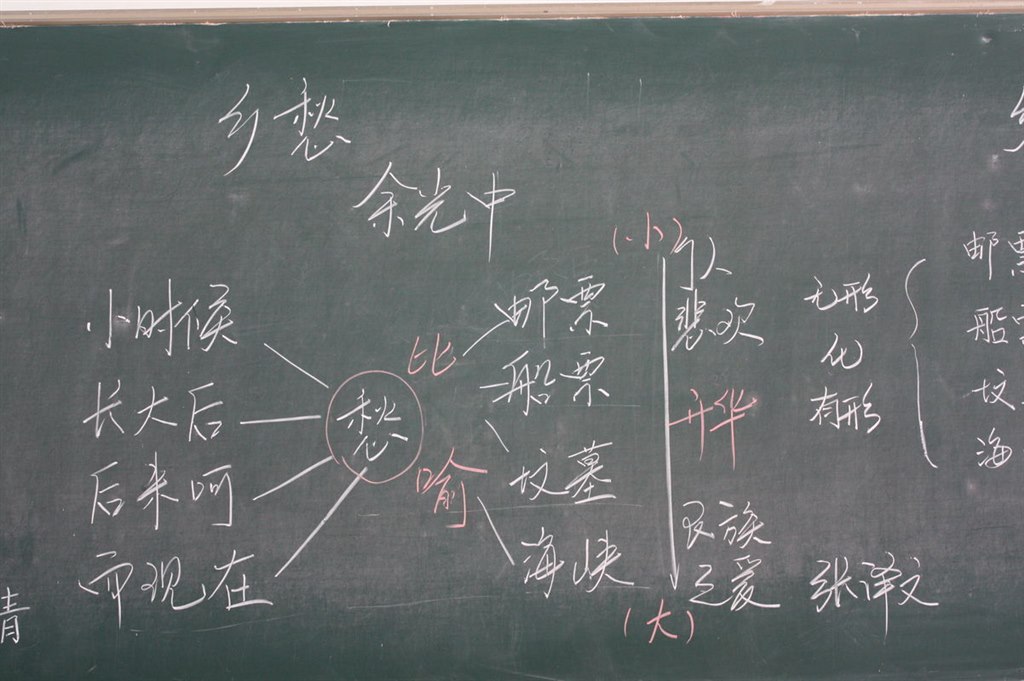 乡愁
余光中
小时候
长大后
后来呵
而现在
愁
比
喻
邮票
船票
坟墓
海峡
(小)
个人
悲欢
升华
民族
之爱
(大)
无形
化
有形
张译文
邮票
船票
坟
海
青